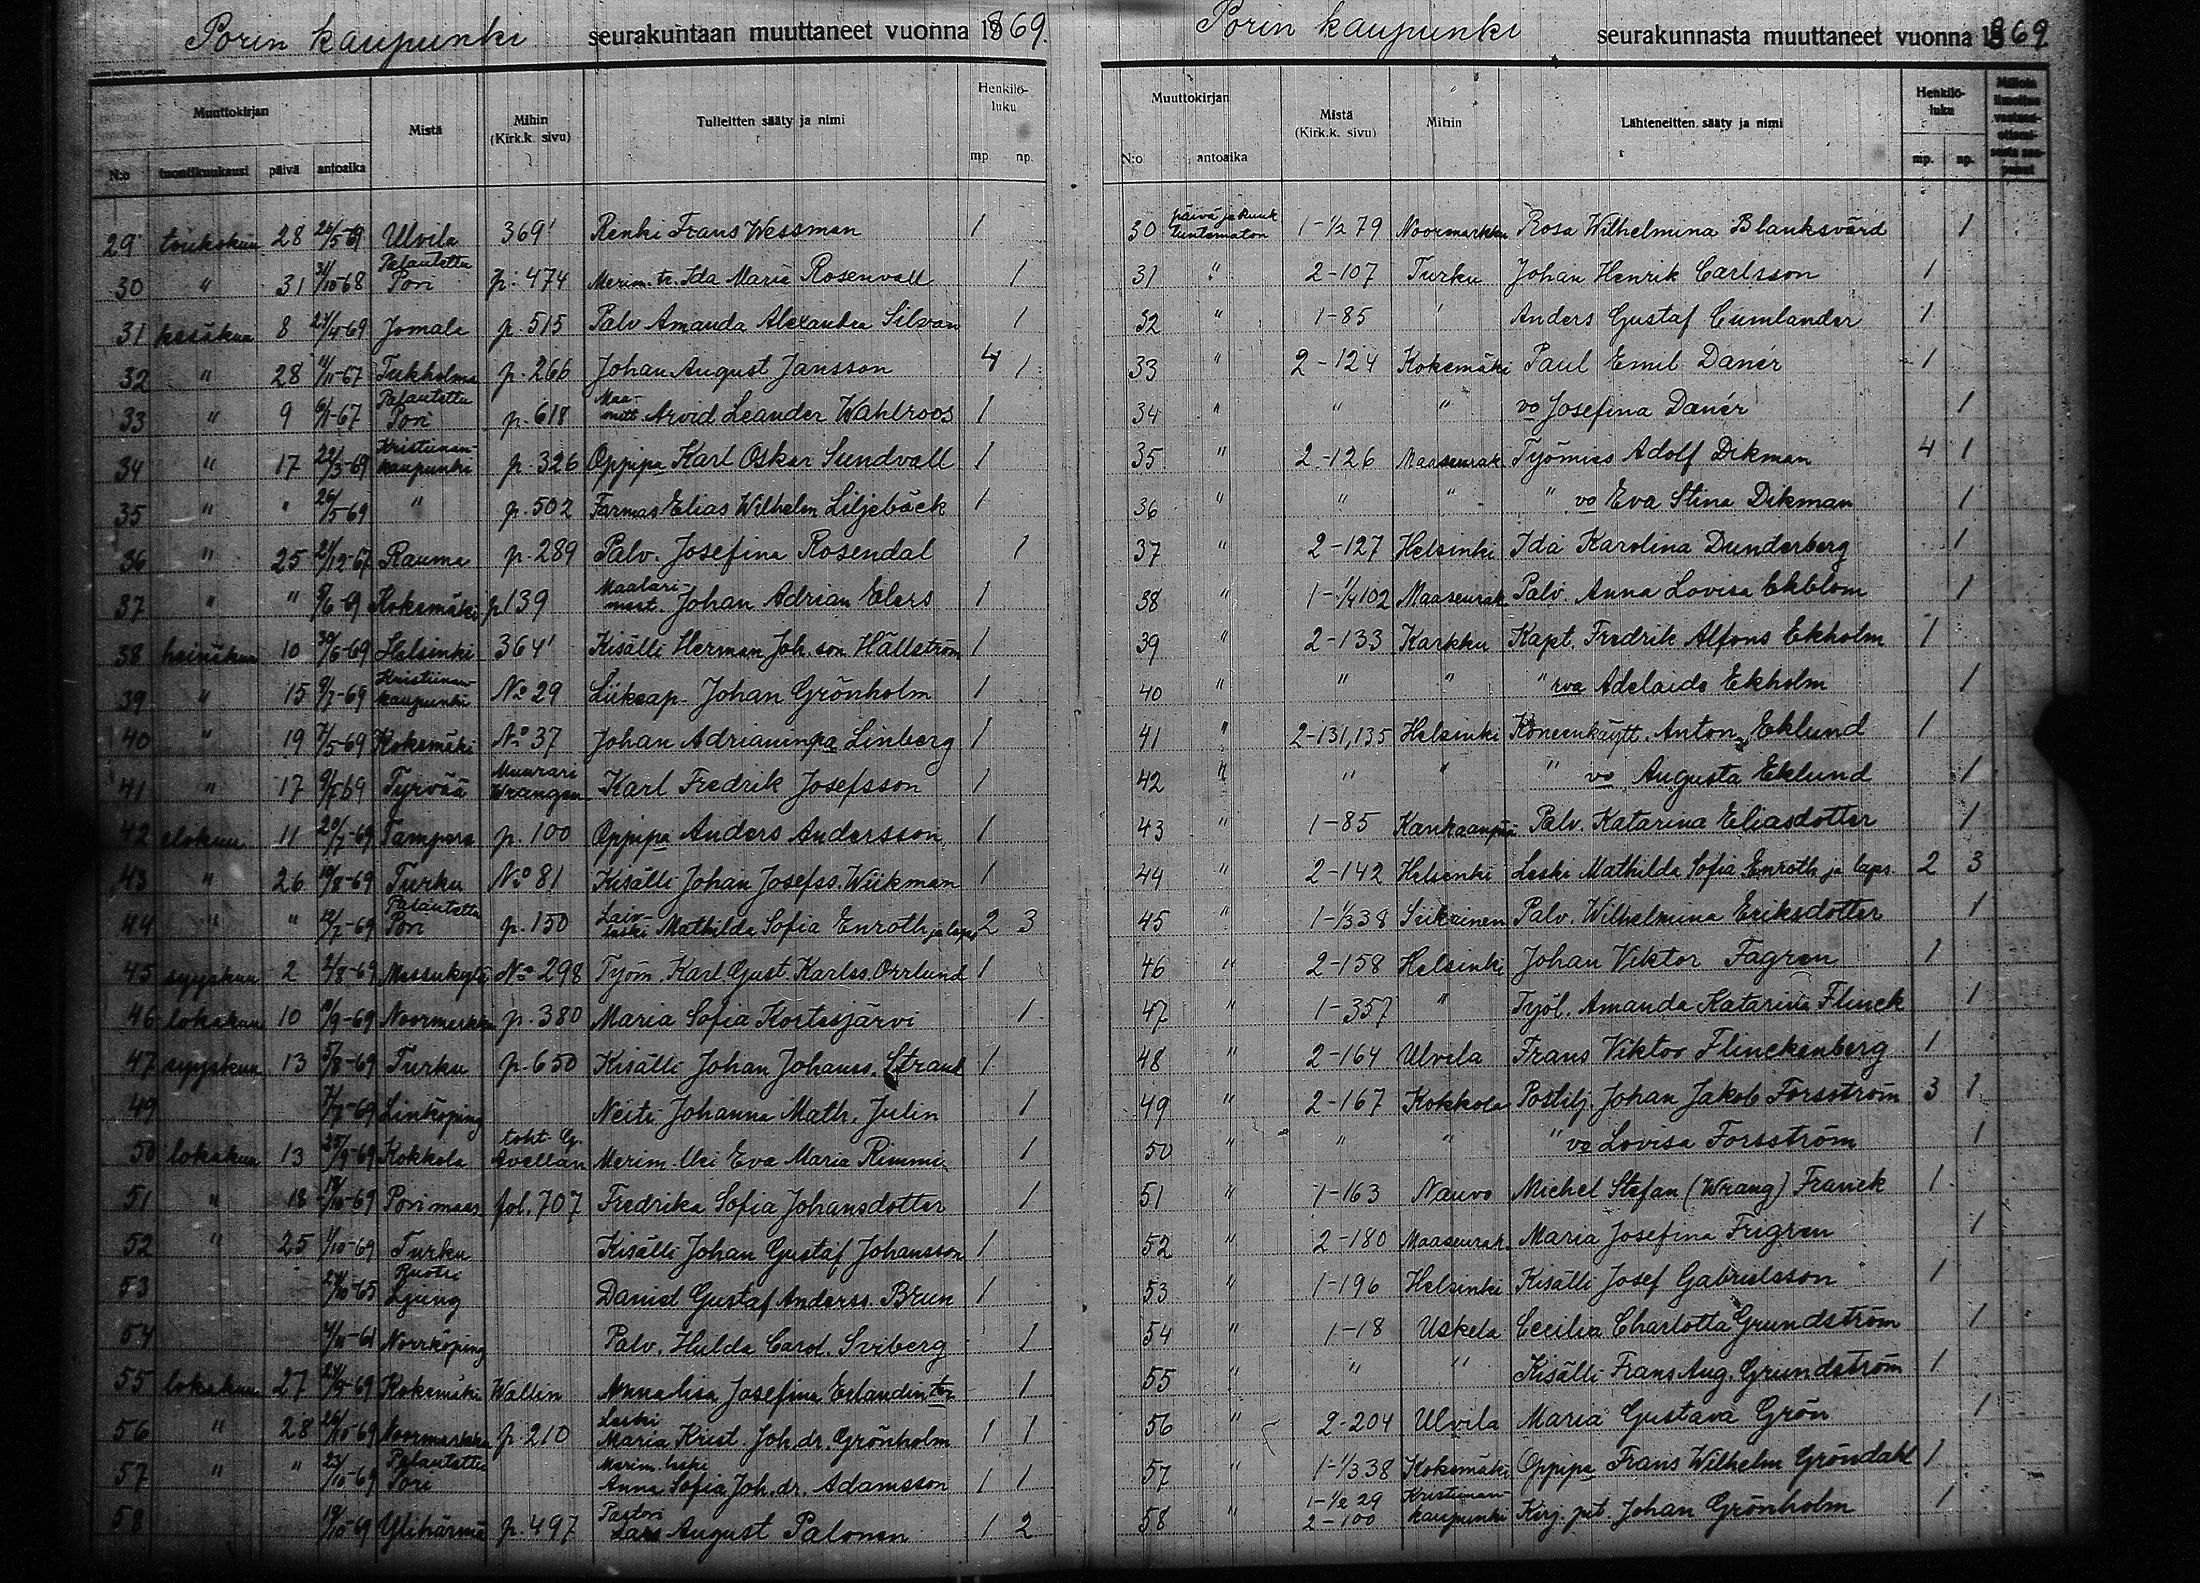 Porin kaupunki seurakuntaan muuttaneet vuonna 1869.
Muuttokirjan Mistä Mihin (Kirk.k. sivu) Tulleitten sääty ja nimi Henkilö-luku
N:o tuontikuukausi päivä antoaika mp np.
29 toukokuu 28 26/5-69 Ulvila 369' Renki Frans Wessman 1
30 " 31 31/10-68 Palautettu Pori p. 474 Merim. tr. Ida Maria Rosenvall 1
31 kesäkuu 8 27/4-69 Jomala p. 515 Palv Amanda Alexandra Silvan 1
32 " 28 11/11-67 Tukholma p. 266 Johan August Jansson 4 1
33 " 9 6/1-67 Palautettu Pori p. 618 Maa-mitt. Arvid Leander Wahlroos 1
34 " 17 22/3-69 Kristiinan-kaupunki p. 326 Oppipa Karl Oskar Sundvall 1
35 " " 26/5-69 " p. 502 Farmas Elias Wilhelm Liljebäck 1
36 " 25 21/12-67 Rauma p. 289 Palv. Josefina Rosendal 1
37 " " 8/6-69 Kokemäki p 139 Maalari-mest. Johan Adrian Elers 1
38 heinäkuu 10 30/6-69 Helsinki 364' Kisälli Herman Joh. son Hällström 1
39 " 15 9/7-69 Kristiinan-kaupunki No 29 Liikeap. Johan Grönholm 1
40 " 19 7/5-69 Kokemäki No 37 Johan Adrianinpa Linberg 1
41 " 17 Tyrvää Muurari Wrangen Karl Fredrik Josefsson 1
42 elokuu 11 20/7-69 Tampere p. 100 Oppipa Anders Andersson 1
43 " 26 19/8-69 Turku No 81 Kisälli Johan Josefss. Wiikman 1
44 " " 12/7-69 Palautettu Pori p. 150 Laiv-leski Mathilda Sofia Enroth ja laps 2 3
45 syyskuu 2 2/8-69 Messukylä No 298 Työm. Karl Gust. Karlss. Orrlund 1
46 lokakuu 10 10/9-69 Noormarkku p. 380 Maria Sofia Kortesjärvi 1
47 syyskuu 13 5/8-69 Turku p. 650 Kisälli Johan Johanss. Strand 1
49 7/7-69 Linköping Neiti Johanna Math. Julin 1
50 lokakuu 13 25/9-69 Kokkola toht. G. Avellan Merim. Eva Maria Rimmi 1
51 " 18 18/10-69 Pori maas. fol. 707 Fredrika Sofia Johansdotter 1
52 " 25 1/10-69 Turku Kisälli Johan Gustaf Johansson 1
53 24/10-65 Ruotsi Ljung Daniel Gustaf Anderss. Brun 1
54 4/11-61 Norrköping Palv. Hulda Carol. Sviberg 1
55 lokakuu 27 24/5-69 Kokemäki Wallin Annalisa Josefina Erlandintr 1
56 " 28 26/10-69 Noormarkku p. 210 Leski Maria Krist. Joh. dr. Grönholm 1 1
57 " " 23/10-69 Palautettu Pori Merim. leski Anna Sofia Joh. dr. Adamsson 1 1
58 19/10-69 Ylihärmä p. 497 Pastori Lars August Palonen 1 2
Porin kaupunki seurakunnasta muuttaneet vuonna 1869
Muuttokirjan Mistä (Kirk.k. sivu) Mihin Lähteneitten sääty ja nimi Henkilö-luku
N:o antoaika mp. np.
30 päivä ja kuuk tuntematon 1-1/2 79 Noormarkku Rosa Wilhelmina Blanksvärd 1
31 " 2-107 Turku Johan Henrik Carlsson 1
32 " 1-85 ' Anders Gustaf Cumlander 1
33 " 2-124 Kokemäki Paul Emil Danér 1
34 " " " vo Josefina Danér 1
35 " 2-126 Maaseurak Työmies Adolf Dikman 4 1
36 " " " " vo Eva Stina Dikman 1
37 " 2-127 Helsinki Ida Karolina Dunderberg 1
38 " 1-1/4 102 Maaseurak Palv. Anna Lovisa Ekblom 1
39 " 2-133 Karkku Kapt. Fredrik Alfons Ekholm 1
40 " " " " rva Adelaide Ekholm 1
41 " 2-131,135 Helsinki Koneenkäytt. Anton Eklund 1
42 " " " " vo Augusta Eklund 1
43 " 1-85 Kankaanpää Palv. Katarina Eliasdotter 1
44 " 2-142 Helsinki Leski Mathilda Sofia Enroth ja laps. 2 3
45 " 1-1/3 38 Siikainen Palv. Wilhelmina Eriksdotter 1
46 " 2-158 Helsinki Johan Viktor Fagren 1
47 " 1-357 " Työl. Amanda Katarina Flinck 1
48 " 2-164 Ulvila Frans Viktor Flinckenberg 1
49 " 2-167 Kokkola Postilj. Johan Jakob Forsström 3 1
50 " " " " vo Lovisa Forsström 1
51 " 1-163 Nauvo Michel Stefan (Wrang) Franck 1
52 " 2-180 Maaseurak. Maria Josefina Frigren 1
53 " 1-196 Helsinki Kisälli Josef Gabrielsson 1
54 " 1-18 Uskela Cecilia Charlotta Grundström 1
55 " " " Kisälli Frans Aug. Grundström 1
56 " 2-204 Ulvila Maria Gustava Grön 1
57 " 1-1/3 38 Kokemäki Oppipa Frans Wilhelm Gröndahl 1
58 " 1-1/2 29 2-100 Kristiinan-kaupunki Kirj. pit. Johan Grönholm 1